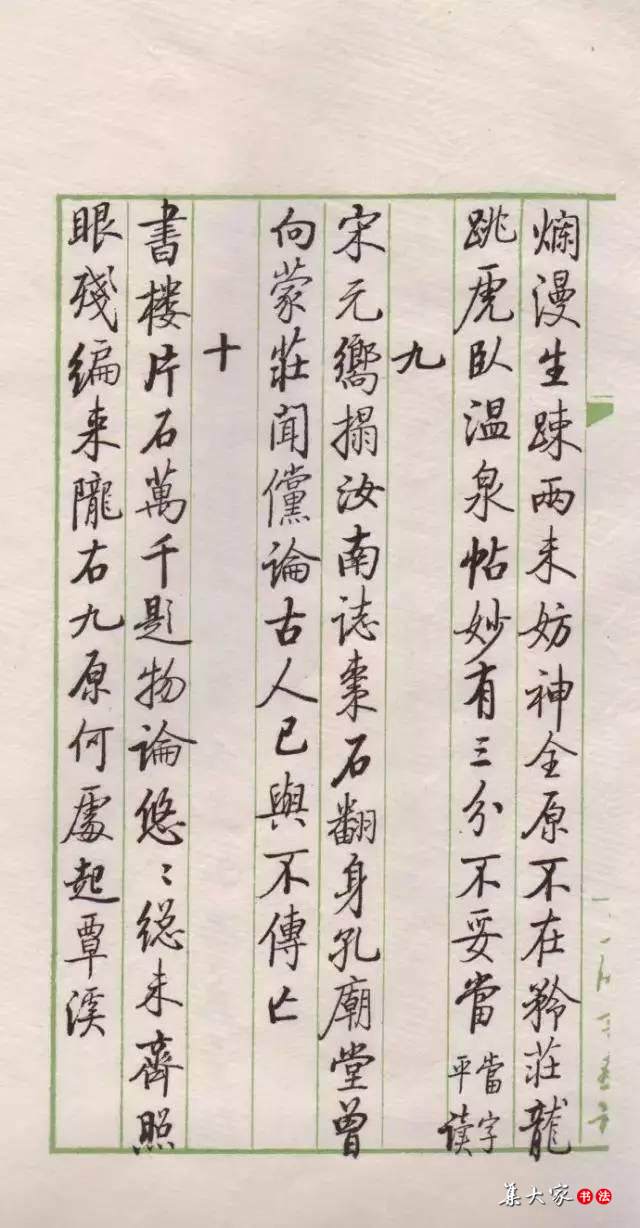 爛漫生踈兩未妨神全原不在矜莊龍
跳虎臥温泉帖妙有三分不妥當當字平读
九
宋元嚮搨汝南誌棗石翻身孔廟堂曾
向蒙莊聞儻論古人已與不傳亡
十
書楼片石萬千題物論悠〻緫未齊照
眼殘编来隴右九原何處起覃溪
集大家书法